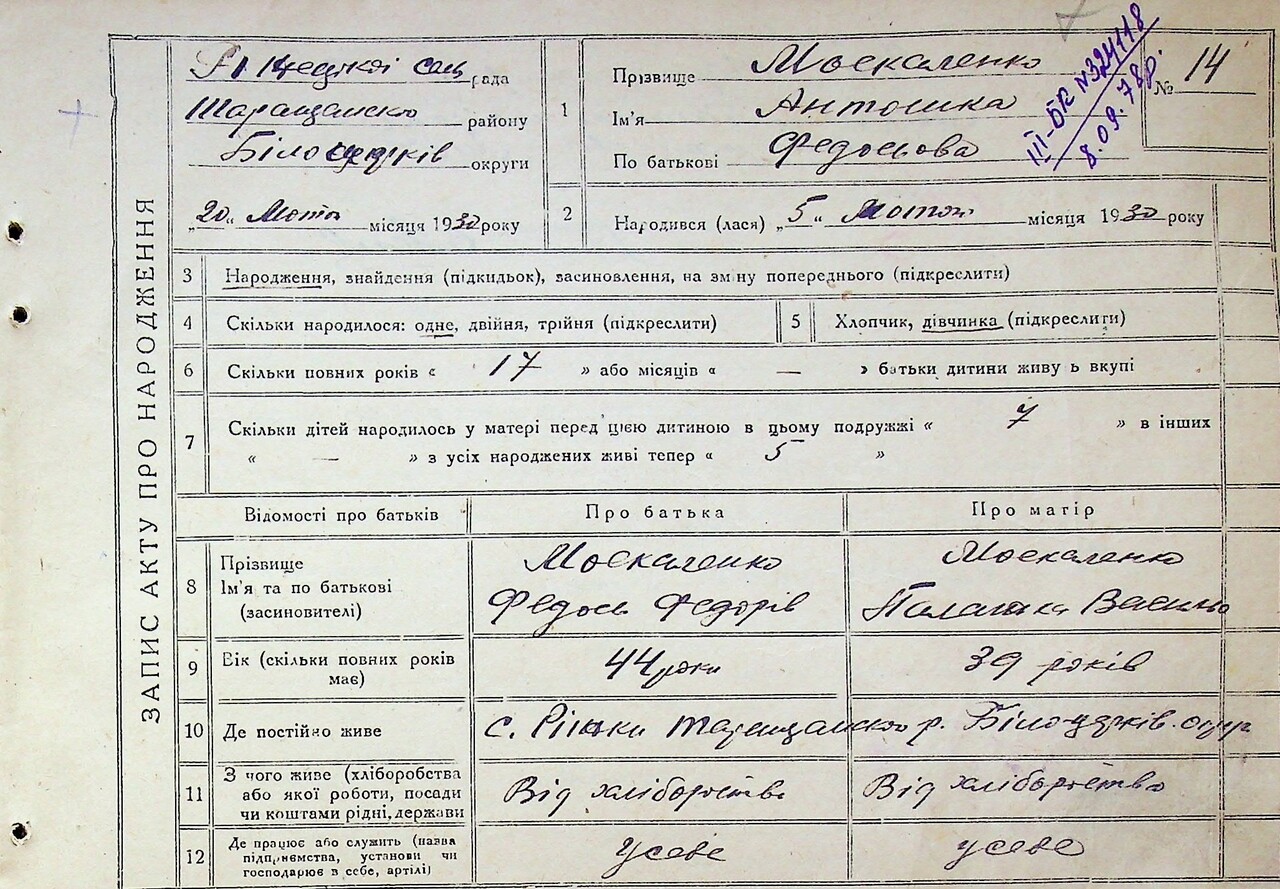 ЗАПИС АКТУ ПРО НАРОДЖЕННЯ
рада
Таращансько району
Білоцерків округи
„20“ Лютого місяця 1930 року
1
Прізвище Москаленко
Ім'я Антошка
По батькові Федосьова
III-БК №324118
8.09.78р.
№ 14
2
Народився (лася) „5“ Лютого місяця 1930 року
3 Народження, знайдення (підкидьок), засиновлення, на зміну попереднього (підкреслити)
4 Скільки народилося: одне, двійня, трійня (підкреслити)
5 Хлопчик, дівчинка (підкреслити)
6 Скільки повних років « 17 » або місяців « — » батьки дитини живуть вкупі
7 Скільки дітей народилось у матері перед цією дитиною в цьому подружжі « 7 » в інших
« — » з усіх народжених живі тепер « 5 »
Відомості про батьків Про батька Про матір
8 Прізвище
Ім'я та по батькові
(засиновителі)
Москаленко
Федось Федорів
Москаленко
Палашка
9 Вік (скільки повних років
має)
44 роки
39 років
10 Де постійно живе
с. Ріжки Таращансько р. Білоцерків. окр
11 З чого живе (хліборобства
або якої роботи, посади
чи коштами рідні, держави
Від хліборобства
Від хліборобства
12 Де працює або служить (назва
підприємства, установи чи
господарює в себе, артілі)
у себе
у себе